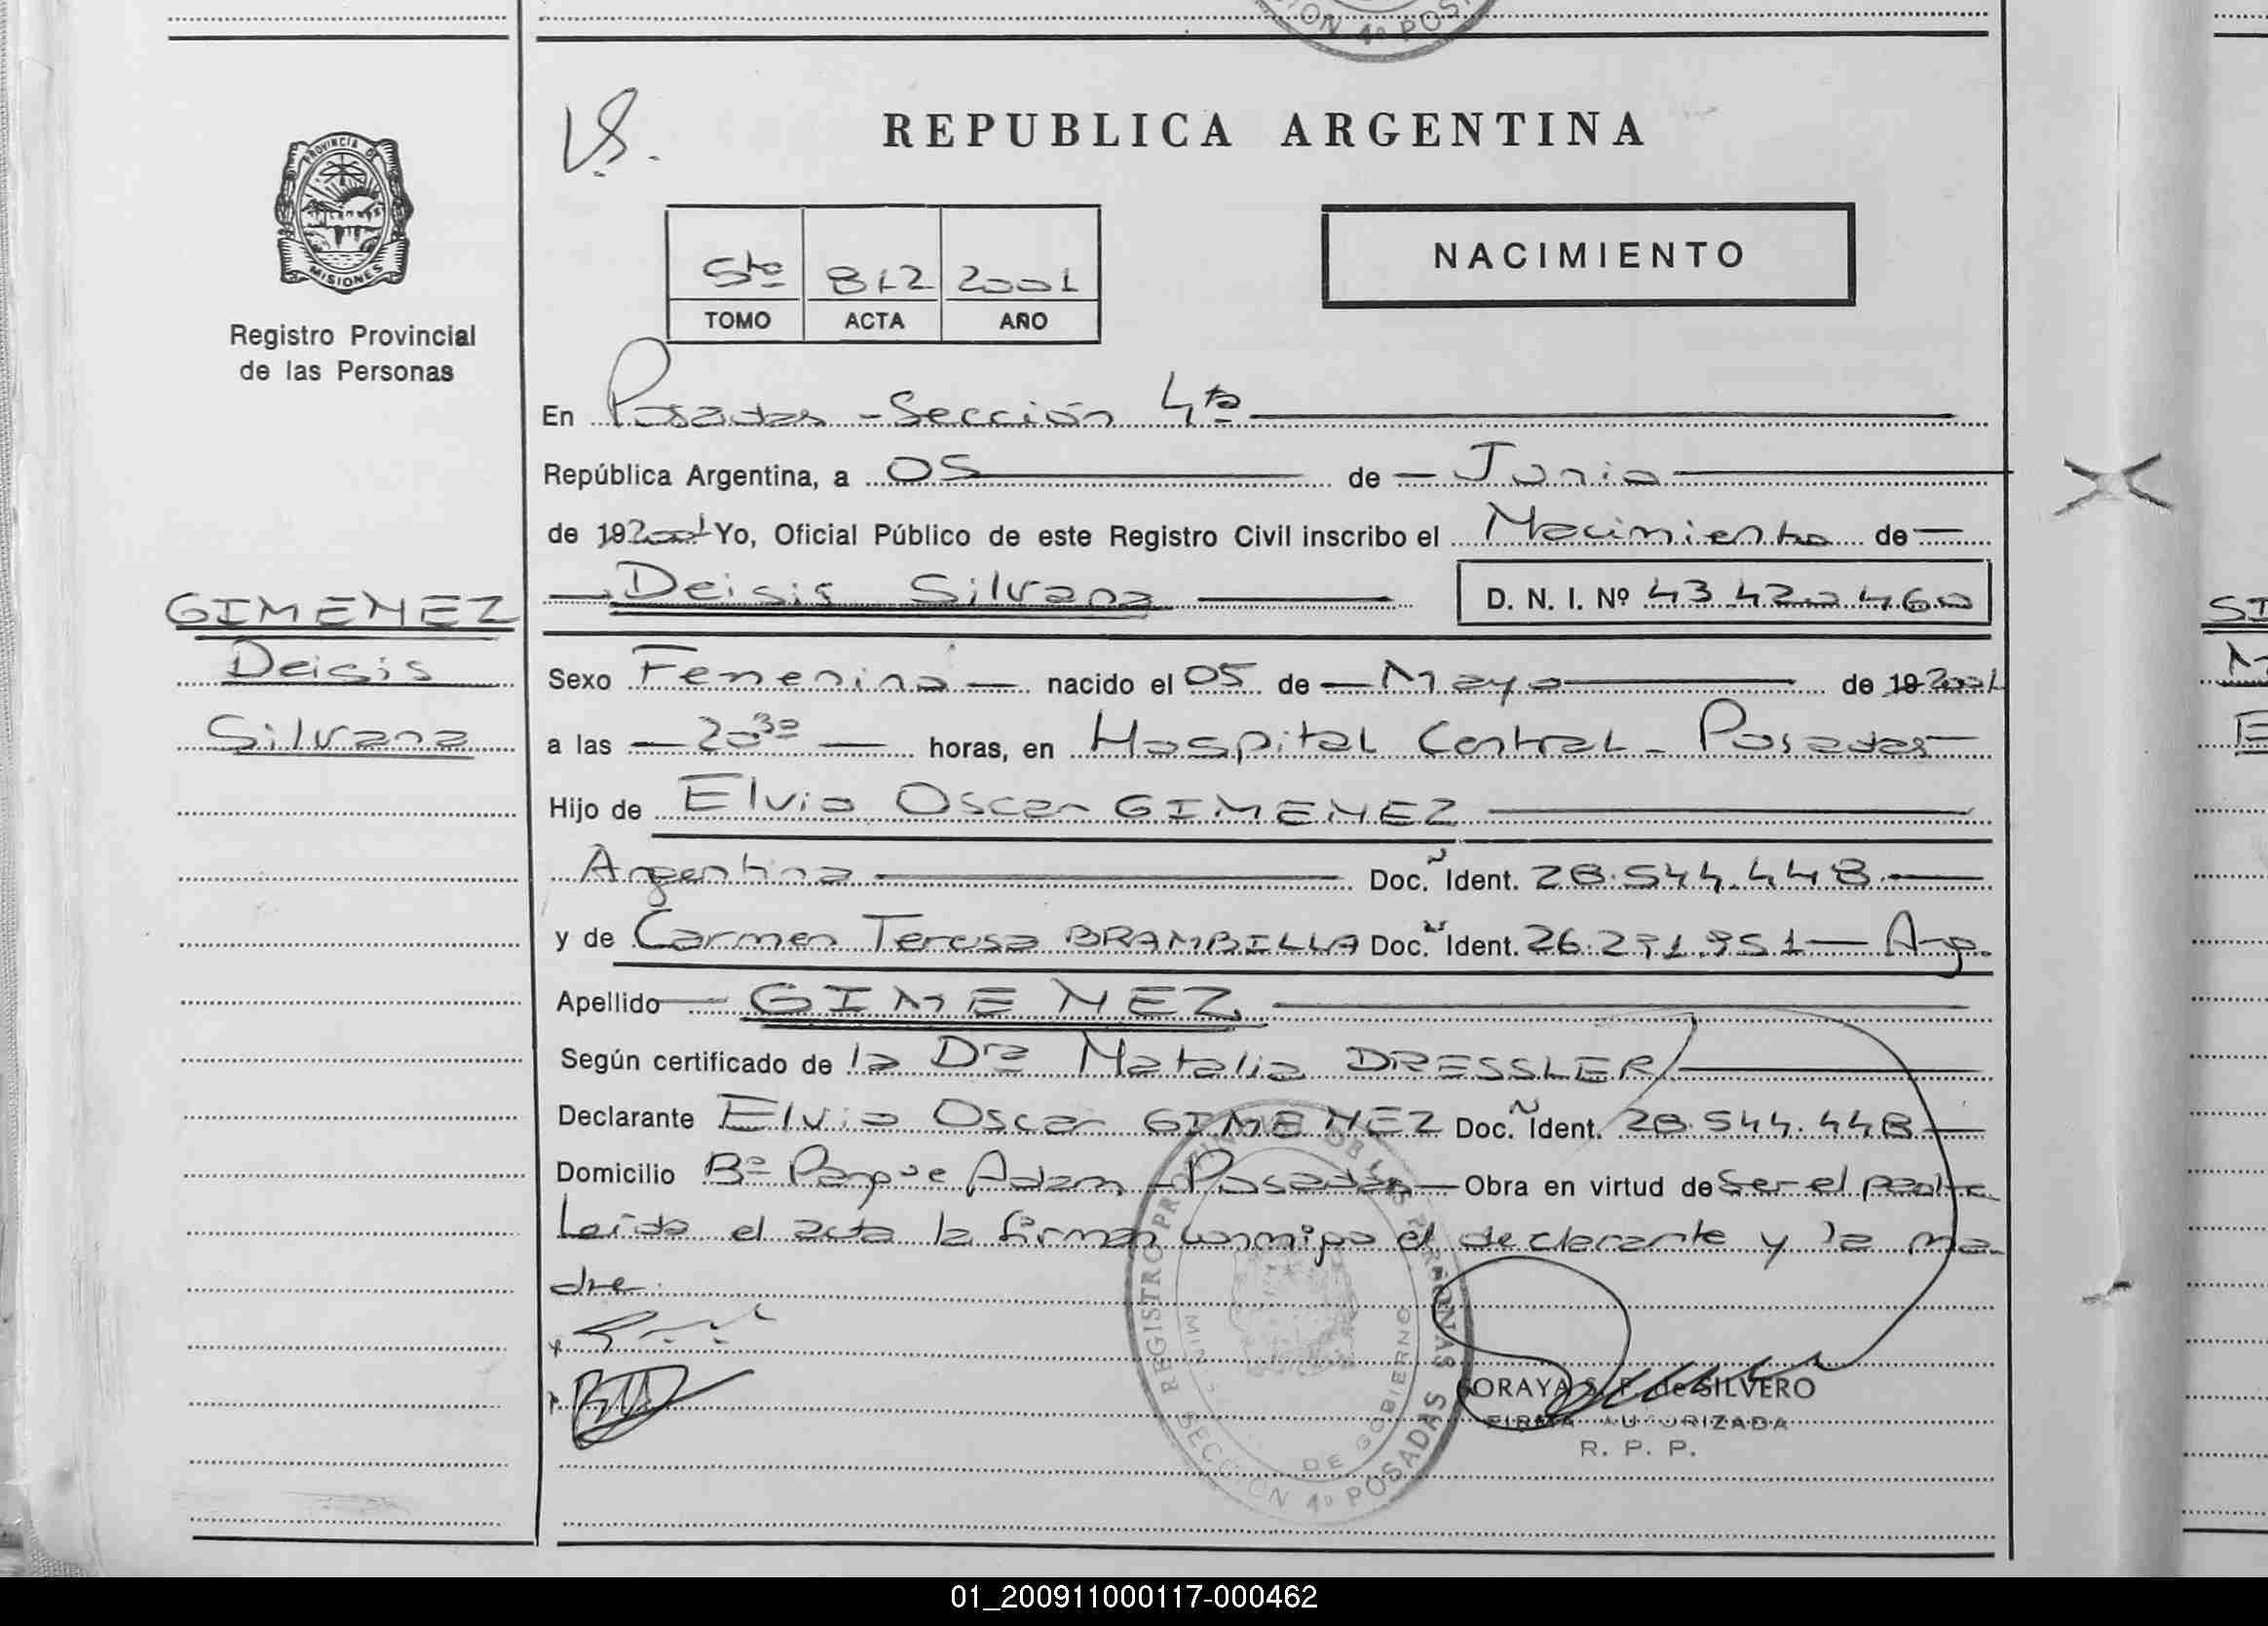 CION 4º POS
REPUBLICA ARGENTINA
PROVINCIA DE
MISIONES
Registro Provincial
de las Personas
NACIMIENTO
5to 812 2001
TOMO ACTA AÑO
En Posadas - Sección 4ta
República Argentina, a 05 de Junio
de 19 2001 Yo, Oficial Público de este Registro Civil inscribo el Nacimiento de
Deisis Silvana D. N. I. Nº 43.420.460
GIMENEZ
Deisis
Silvana
Sexo Femenino nacido el 05 de Mayo de 19 2001
a las 20 30 horas, en Hospital Central - Posadas
Hijo de Elvio Oscar GIMENEZ
Argentina Doc. Ident. 28.544.448
y de Carmen Teresa BRAMBILLA Doc. Ident. 26.291.951 - Arg.
Apellido GIMENEZ
Según certificado de la Dra Natalia DRESSLER
Declarante Elvio Oscar GIMENEZ Doc. Ident. 28.544.448
Domicilio Bº Parque Adam - Posadas - Obra en virtud de Ser el padre
Leída el acta la firman conmigo el declarante y la ma-
dre.
REGISTRO PROVINCIAL DE LAS PERSONAS
MIN. DE GOBIERNO
SECCION 4º POSADAS
SORAYA S. F. de SILVERO
FIRMA AUTORIZADA
R. P. P.
01_200911000117-000462